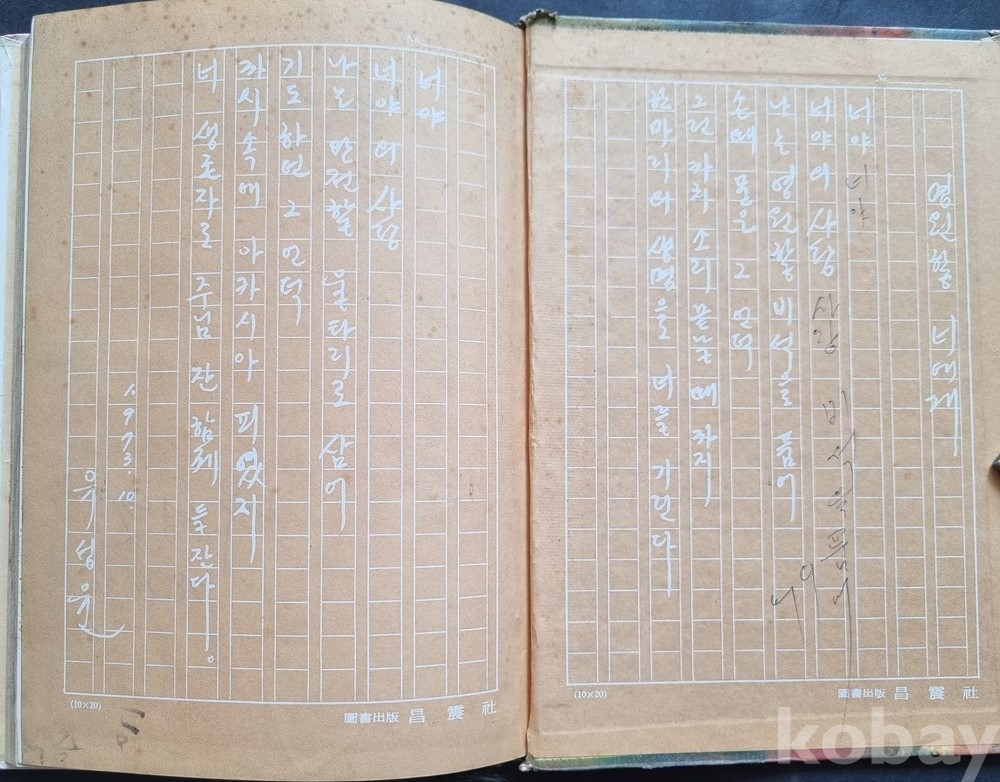 영원할 너에게
너야
너야
너야의 사랑
사랑 비석을품어
나는 영원할 비석을 품어
손때 묻은 그 언덕
그런 까치 소리 끝날 때 까지
한마리의 생명을 너를 기린다
(10×20)
圖書出版 昌震社
너야
너야의 사랑
나는 안전할 울타리로 삼어
기도하던 그 언덕
까시 속에 아카시아 피었지
너 생존자로 주님 잔 함께 들잔다.
1973. 10.
유성윤
(10×20)
圖書出版 昌震社
kobay